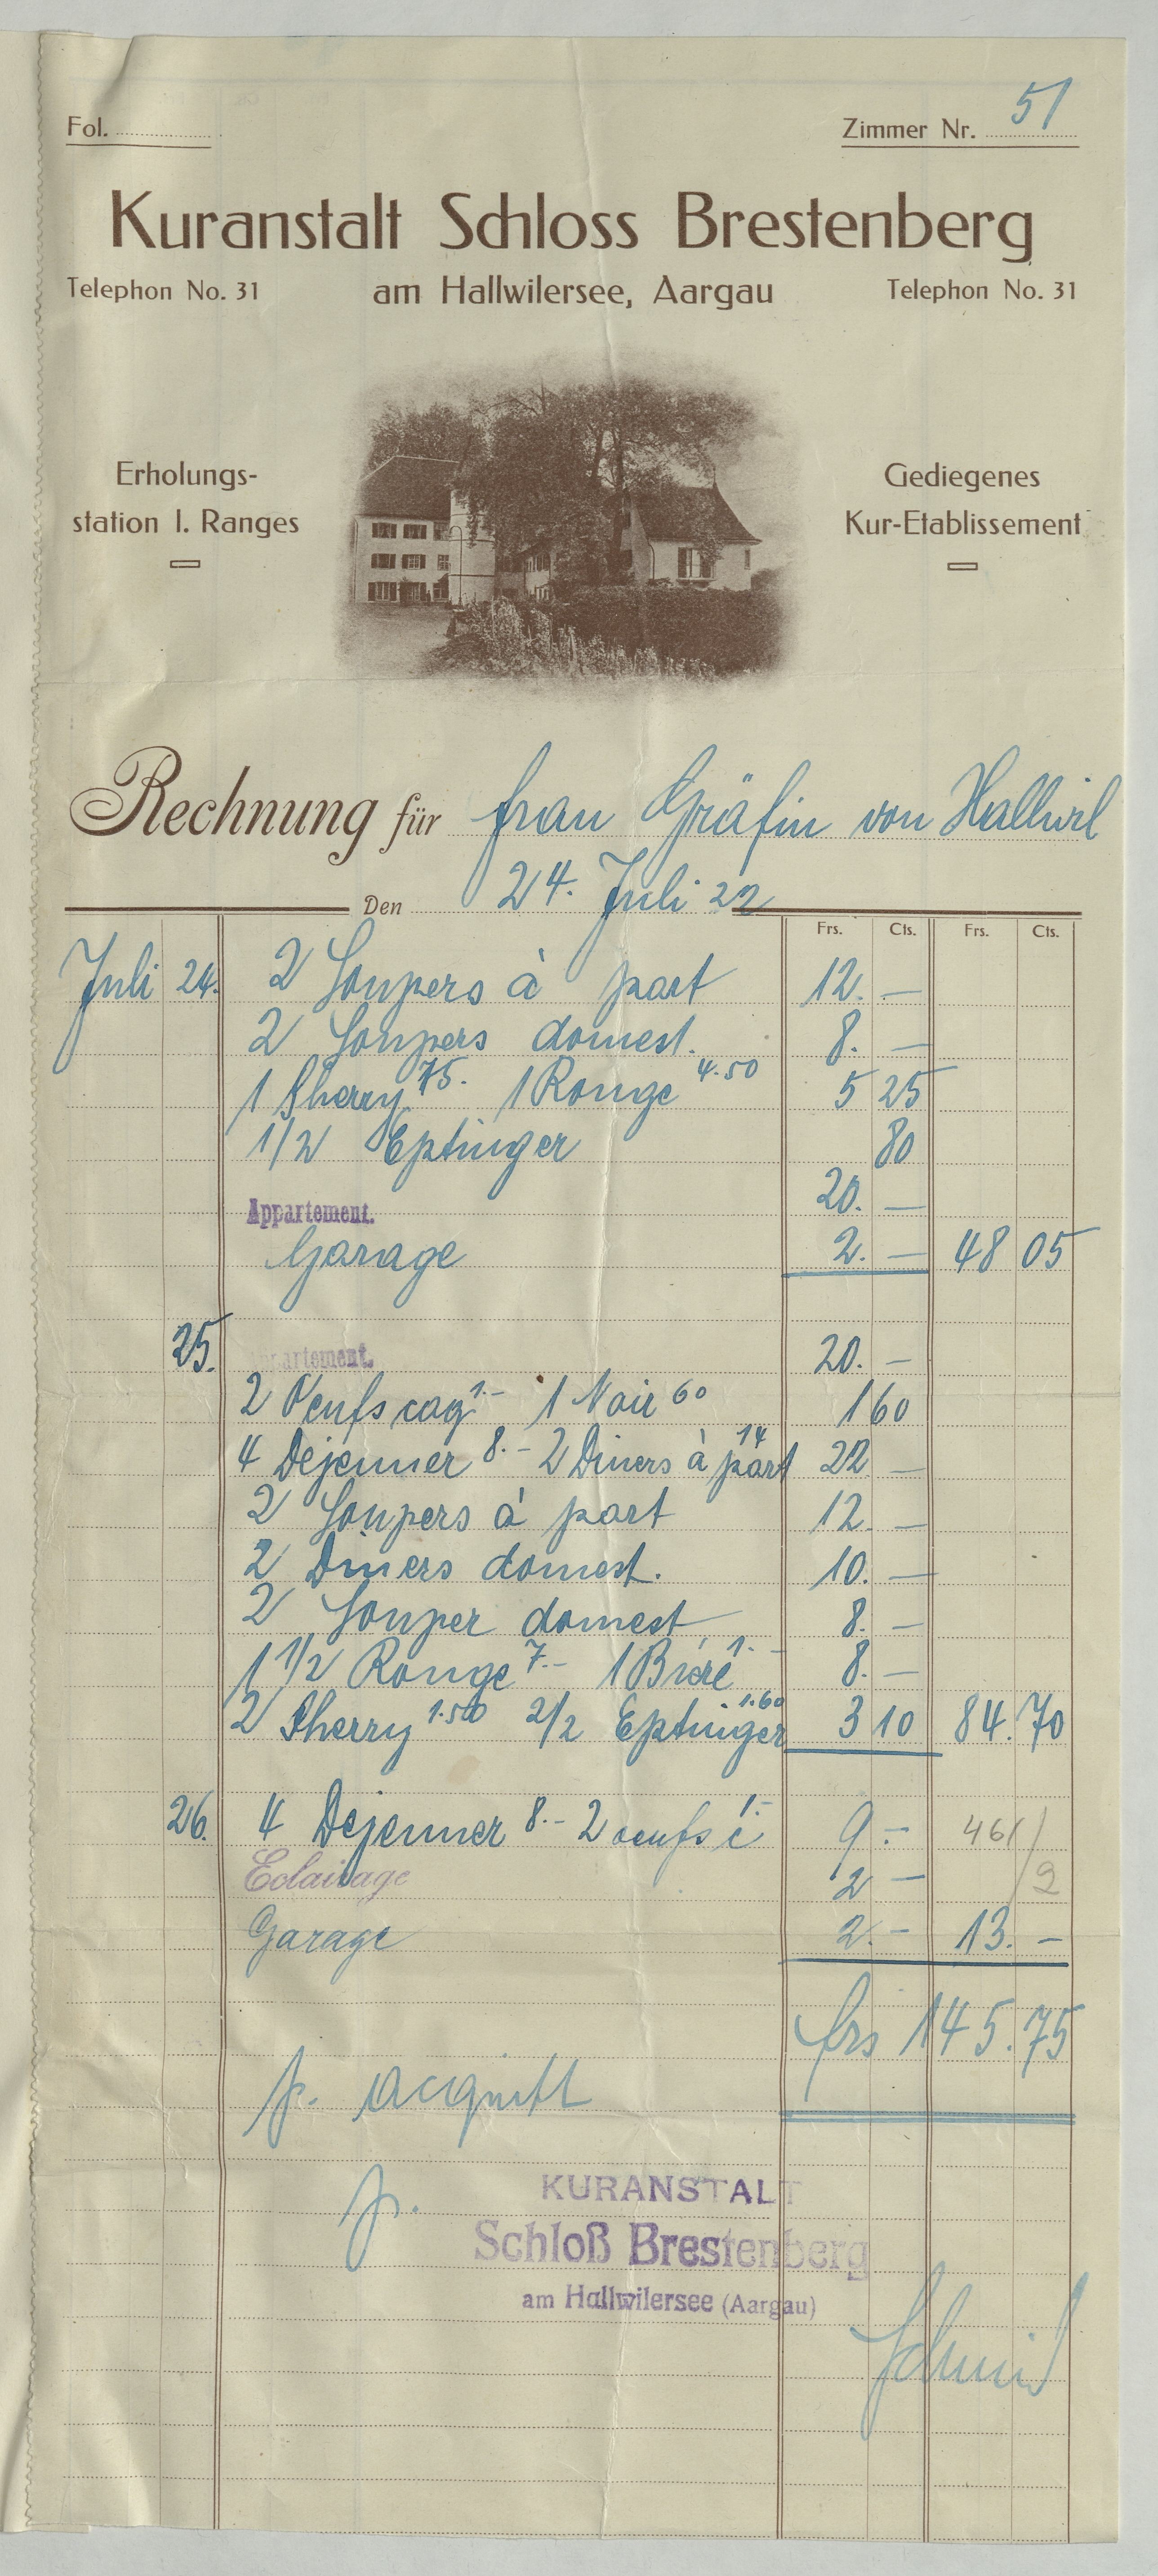 Fol. Zimmer Nr. 51
Kuranstalt Schloss Brestenberg
Telephon No. 31 am Hallwilersee, Aargau Telephon No. 31
Erholungs-
station I. Ranges
Gediegenes
Kur-Etablissement
Rechnung für Frau Gräfin von Hallwil
Den 24. Juli 22
Frs. Cts. Frs. Cts.
Juli 24. 2 Soupers à part 12. —
2 Soupers domest. 8. —
1 Sherry 75. 1 Rouge 4.50 5 25
1/2 Eptinger 80
Appartement. 20. —
Garage 2. — 48 05
25. Appartement. 20. —
2 Oeufs coq 1.- 1 Noir 60 1 60
4 Dejenner 8.- 2 Diners à part 14 22 —
2 Soupers à part 12. —
2 Diners domest. 10. —
2 Souper domest 8. —
1 1/2 Rouge 7.- 1 Bière 1.- 8. —
2 Sherry 1.50 2/2 Eptinger 1.60 3 10 84. 70
26. 4 Dejenner 8.- 2 oeufs c 1.- 9.- 461/2
Eclairage 2 —
Garage 2.- 13. —
frs 145.75
p. acquitt
p.
KURANSTALT
Schloß Brestenberg
am Hallwilersee (Aargau)
Schmid